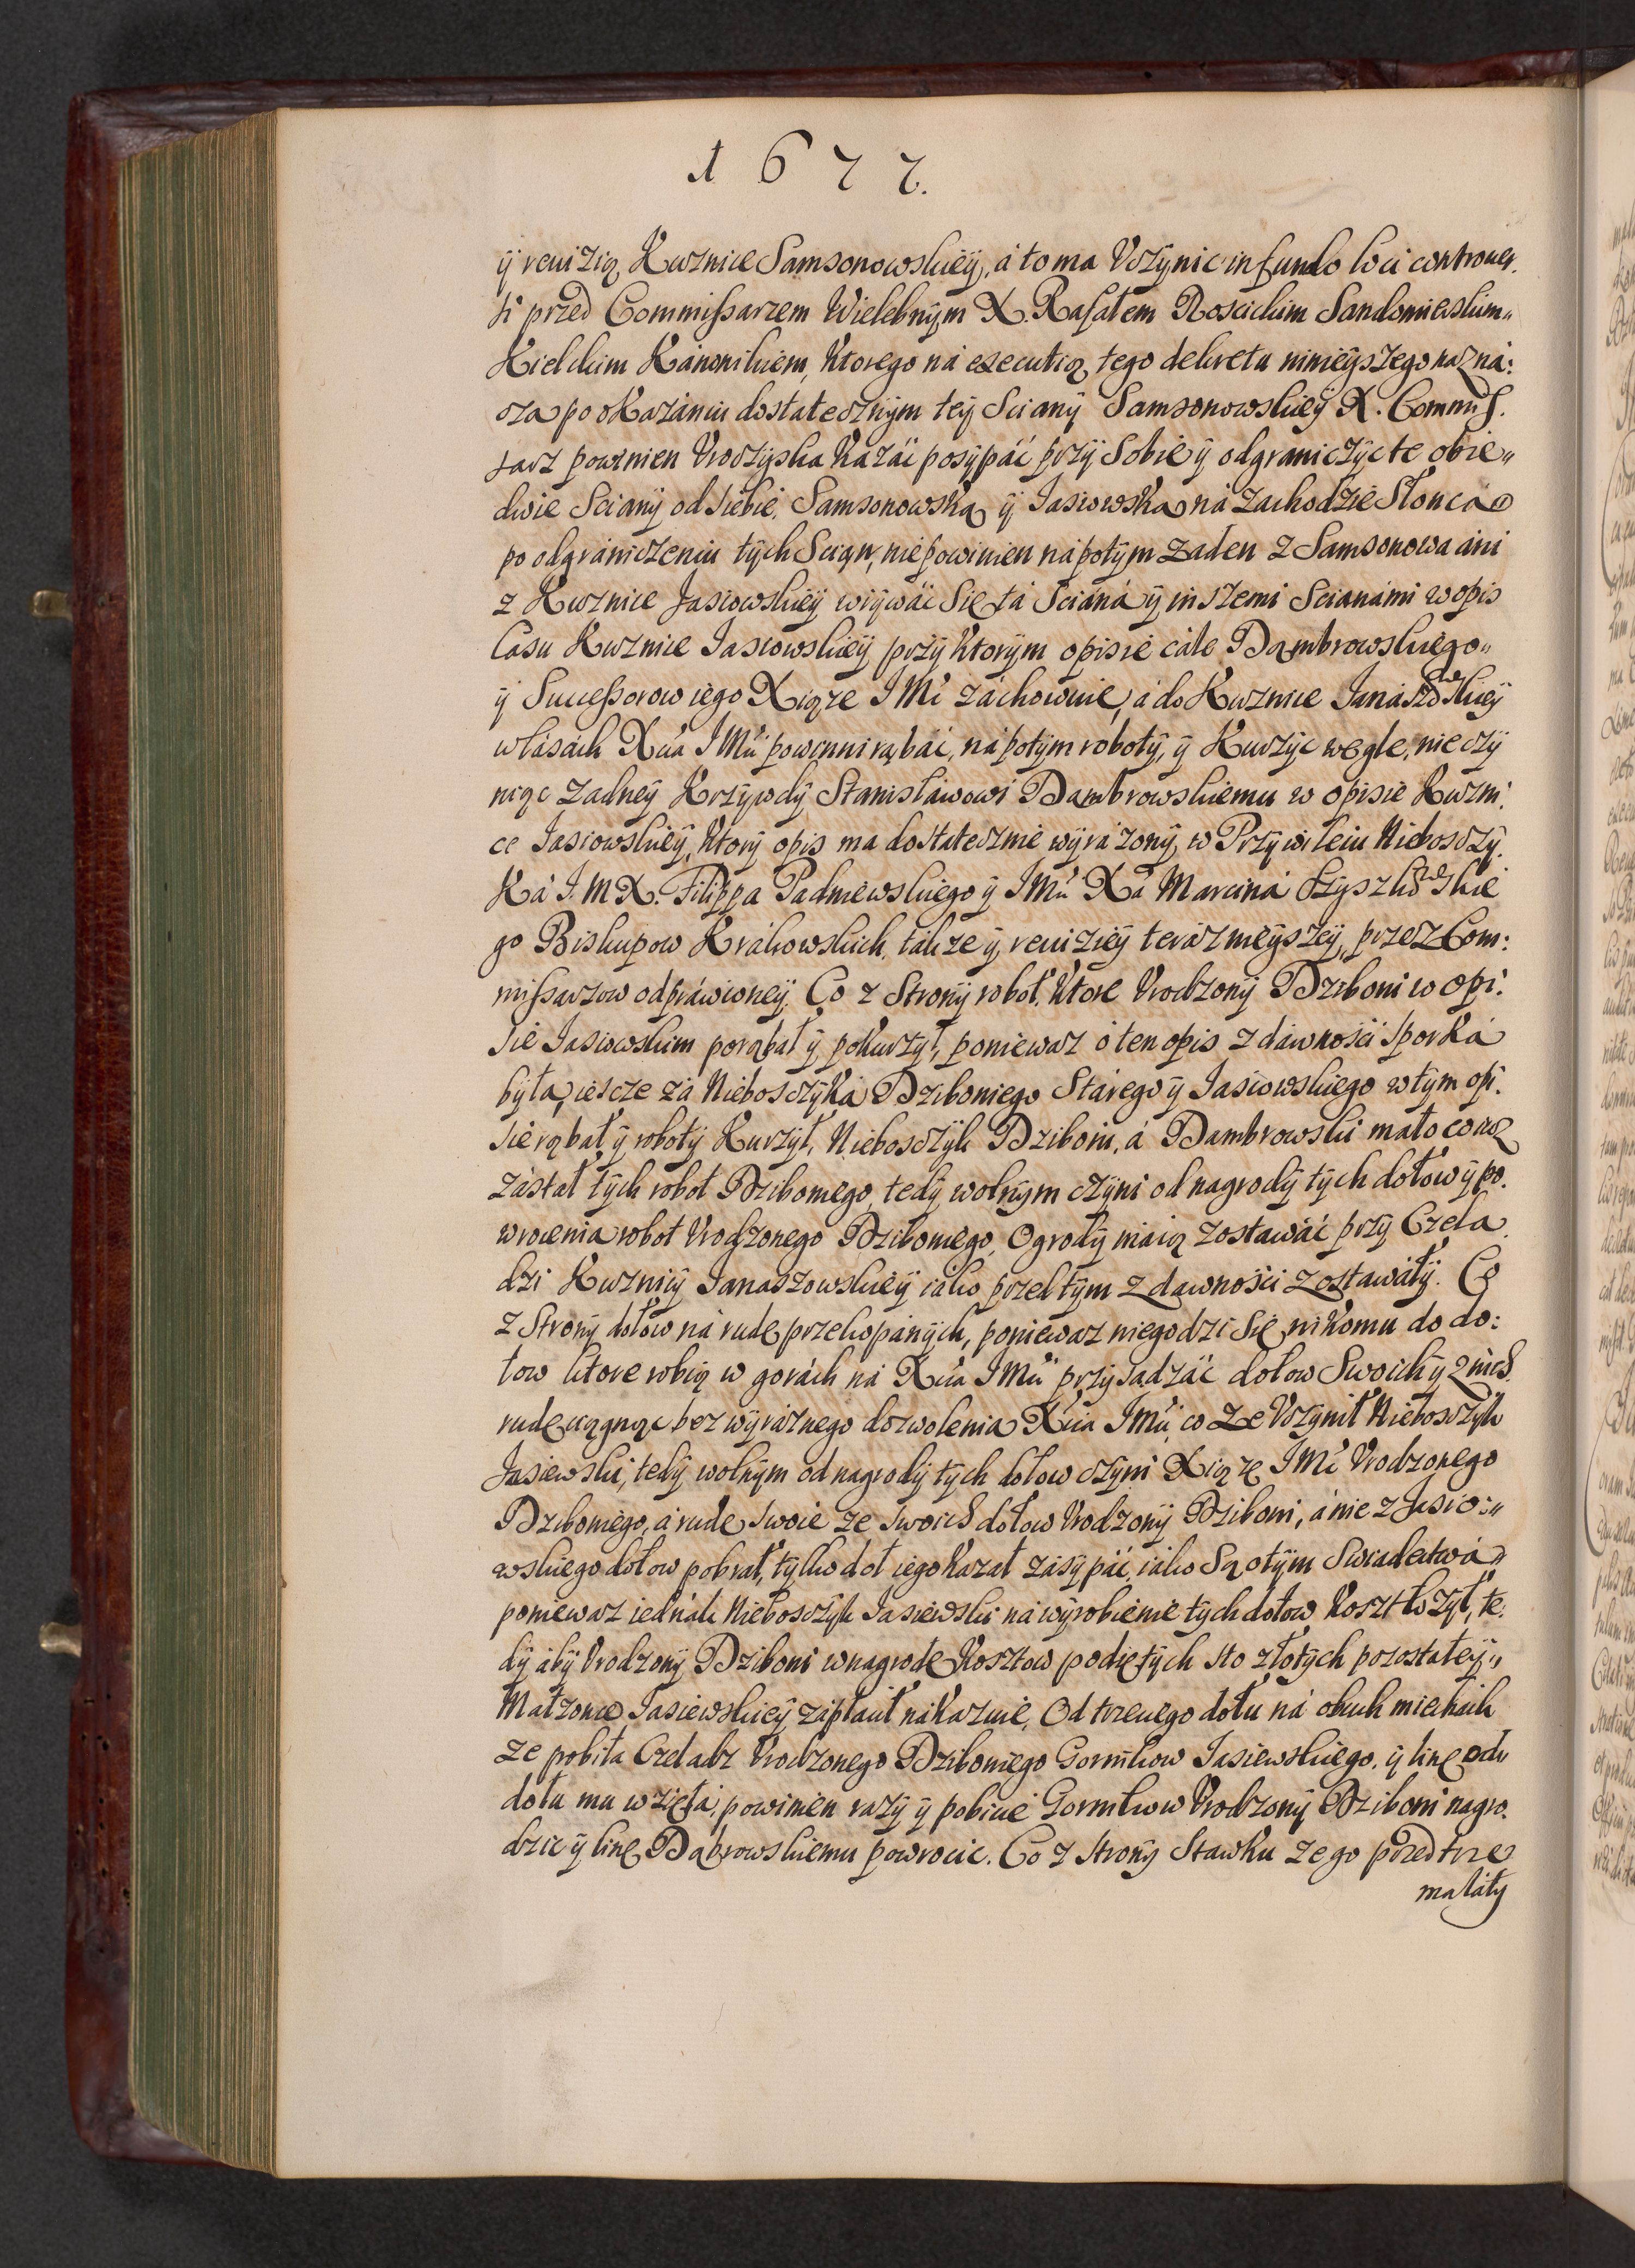 1677.
ÿ reuizią Kuznice Samsonowskieÿ, á to ma Vczÿnic in fundo loci controuer.
si przed Commissarzem Wielebnÿm X. Rafałem Roscickim Sandomierskim
Kieleckim Kánonikiem, Ktorego ná executią tego dekretu ninieÿszego názná:
cza po okazániu dostatecznÿm teÿ Scianÿ Samsonowskieÿ X. Commis.
sarz powinien Vroczÿska Kazáć posÿpáć przÿ Sobie ÿ odgraniczÿc te obie
dwie Scianÿ od siebie, Samsonowską ÿ Jasiowską ná Zachodzie Słonca
po odgrániczeniu tÿch Scian, niepowinien nápotÿm Zaden z Samsonowa áni
z Kuznice Jasiowskieÿ wrÿwáć Się tá Scianá ÿ inszemi Scianámi w opis
Casu Kuznice Jasiowskieÿ przÿ Ktorÿm opisie cále Dąmbrowskiego
ÿ Successorow iego Xiąze JMć záchowuie, á do Kuznice Janászowskieÿ
w lásách Xcia JMći powinni rąbáć, nápotÿm robotÿ, ÿ Kurzÿc węgle, nieczÿ
niąc Zadneÿ Krzÿwdÿ Stanisłáwowi Dambrowskiemu w opisie Kuzni.
ce Jasiowskieÿ, Ktorÿ opis ma dostatecznie wÿrázonÿ, w Przÿwileiu Nieboszczÿ.
Ká J. M X. Filippa Padniewskiego ÿ JMći Xá Marciná Szÿszkowskie
go Biskupow Krákowskich, tákze ÿ reuizieÿ teráznieÿszeÿ, przez Com:
missarzow odpráwioneÿ. Co z Stronÿ robot, Ktore Vrodzonÿ Dziboni w opi:
sie Jasiowskim porąbał ÿ pokurzÿł, poniewaz o ten opis z dáwnosći sporká
bÿła, iescze zá Nieboszczÿká Dziboniego Stárego ÿ Jasiowskiego w tÿm opi.
sie rąbał ÿ robotÿ Kurzÿł, Nieboszczÿk Dziboni, á Dambrowski máło co
zástał tÿch robot Dziboniego, tedÿ wolnÿm czÿni od nagrodÿ tÿch dołow ÿ po.
wrocenia robot Vrodzonego Dziboniego, Ogrodÿ máią zostawáć przÿ Czela.
dzi Kuznicÿ Janaszowskieÿ iáko przed tÿm z dawnosći zostawáłÿ. Co
z Stronÿ dołow ná rudę przekopánÿch, poniewaz niegodzi się nikomu do do:
łow ktore robią w gorách ná Xcia JMći przÿsadzáć dołow Swoich ÿ z nich
rudę ciągnąc bez wÿráznego dozwolenia Xcia JMći, co ze Vczÿnił Nieboszczÿk
Jasiewski, tedÿ wolnÿm od nagrodÿ tÿch dołow czÿni Xiąze JMć Vrodzonego
Dziboniego, á rudę swoię ze swoich dołow Vrodzonÿ Dziboni, á nie z Jasio:
wskiego dołow pobrał, tÿlko doł iego Kazał zásÿpáć, iáko Są o tÿm Swiadectwá
poniewaz iednák Nieboszczÿk Jasiewski ná wÿrobienie tÿch dołow koszt łozÿł, te.
dÿ ábÿ Vrodzonÿ Dziboni w nagrodę Kosztow podiętÿch sto złotÿch pozostałeÿ
Małzonce Jasiewskieÿ zápłacił nákazuie. Od trzeciego dołu ná
ze pobiła Czeladz Vrodzonego Dziboniego Gornikow Jasiewskiego, ÿ linę od
dołu mu wzięłá, powinien razÿ ÿ pobicie Gornikow Vrodzonÿ Dziboni nagro.
dzic ÿ linę Dąbrowskiemu powrocic. Co z stronÿ Stawku ze go przed trze
ma látÿ